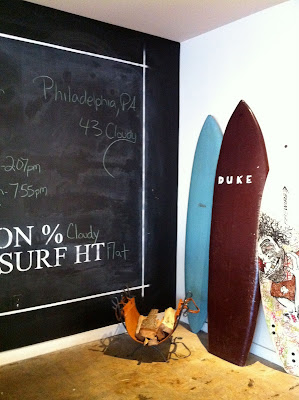 Philadelphia, PA
43 Cloudy
-2:07pm
-7:55pm
ON % Cloudy
SURF HT Flat
DUKE